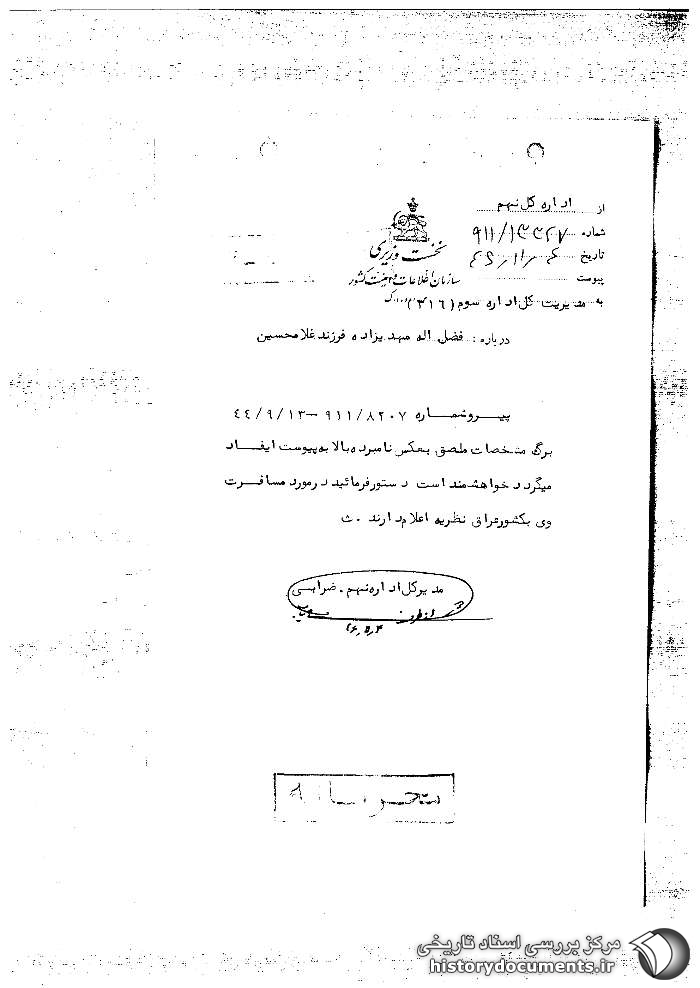 از اداره کل نهم
شماره ۹۱۱/۱۳۳۲۷
تاریخ
پیوست
نخست وزیری
سازمان اطلاعات و امنیت کشور
به مدیریت کل اداره سوم (۳۱۶)
درباره : فضل اله مهدیزاده فرزند غلامحسین
پیرو شماره ۹۱۱/۸۲۰۷ -۴۴/۹/۱۳
برگ مشخصات ملصق بعکس نامبرده بالا به پیوست ایفاد
میگردد خواهشمند است دستور فرمائید در مورد مسافرت
وی بکشور عراق نظریه اعلام دارند . ث
مدیر کل اداره نهم . ضرابی
از طرف
محرمانه
مرکز بررسی اسناد تاریخی
historydocuments.ir